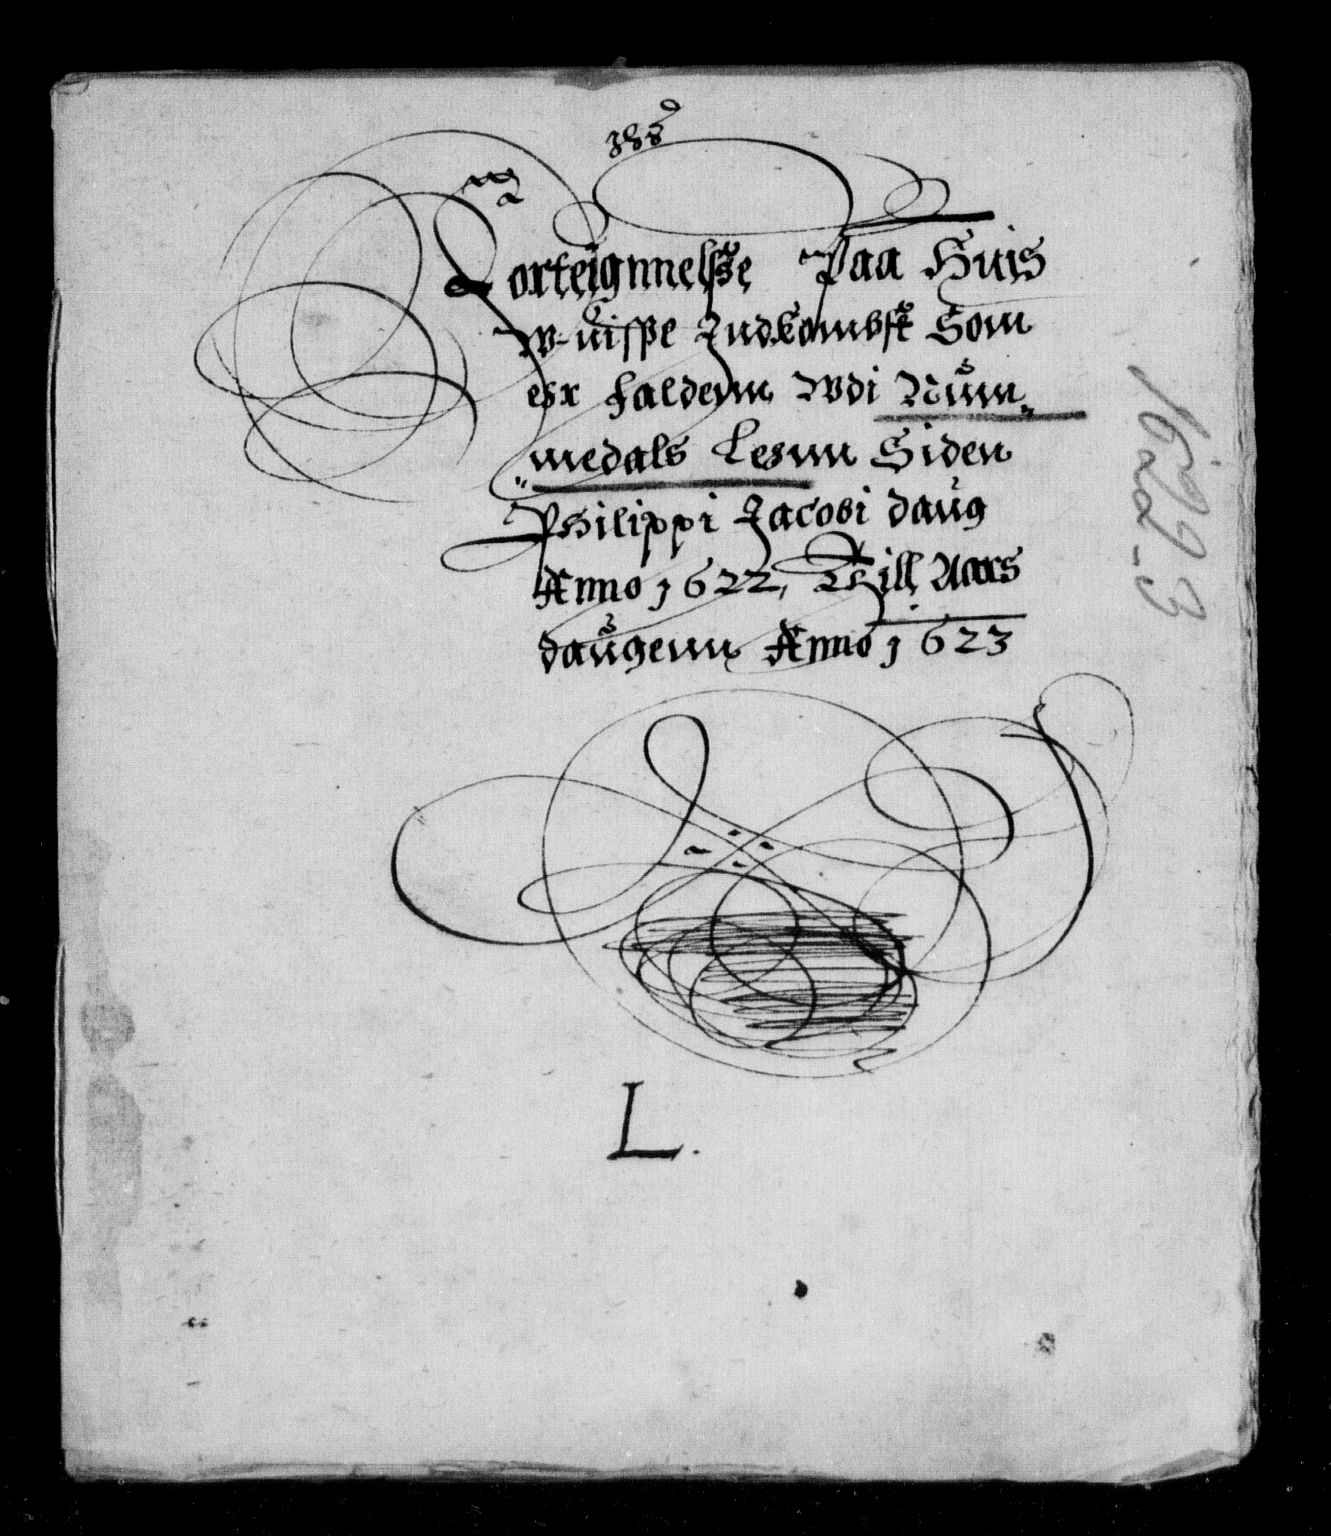 Forteignnelsße Paa Huis
W-uispe Indkombst Som
ehr falden Wdi Num„
„medals Lehnn Siden
Philippi Jacobi daug
Anno 1622, Till Aars
daugenn Anno 1623
L.
1622-3